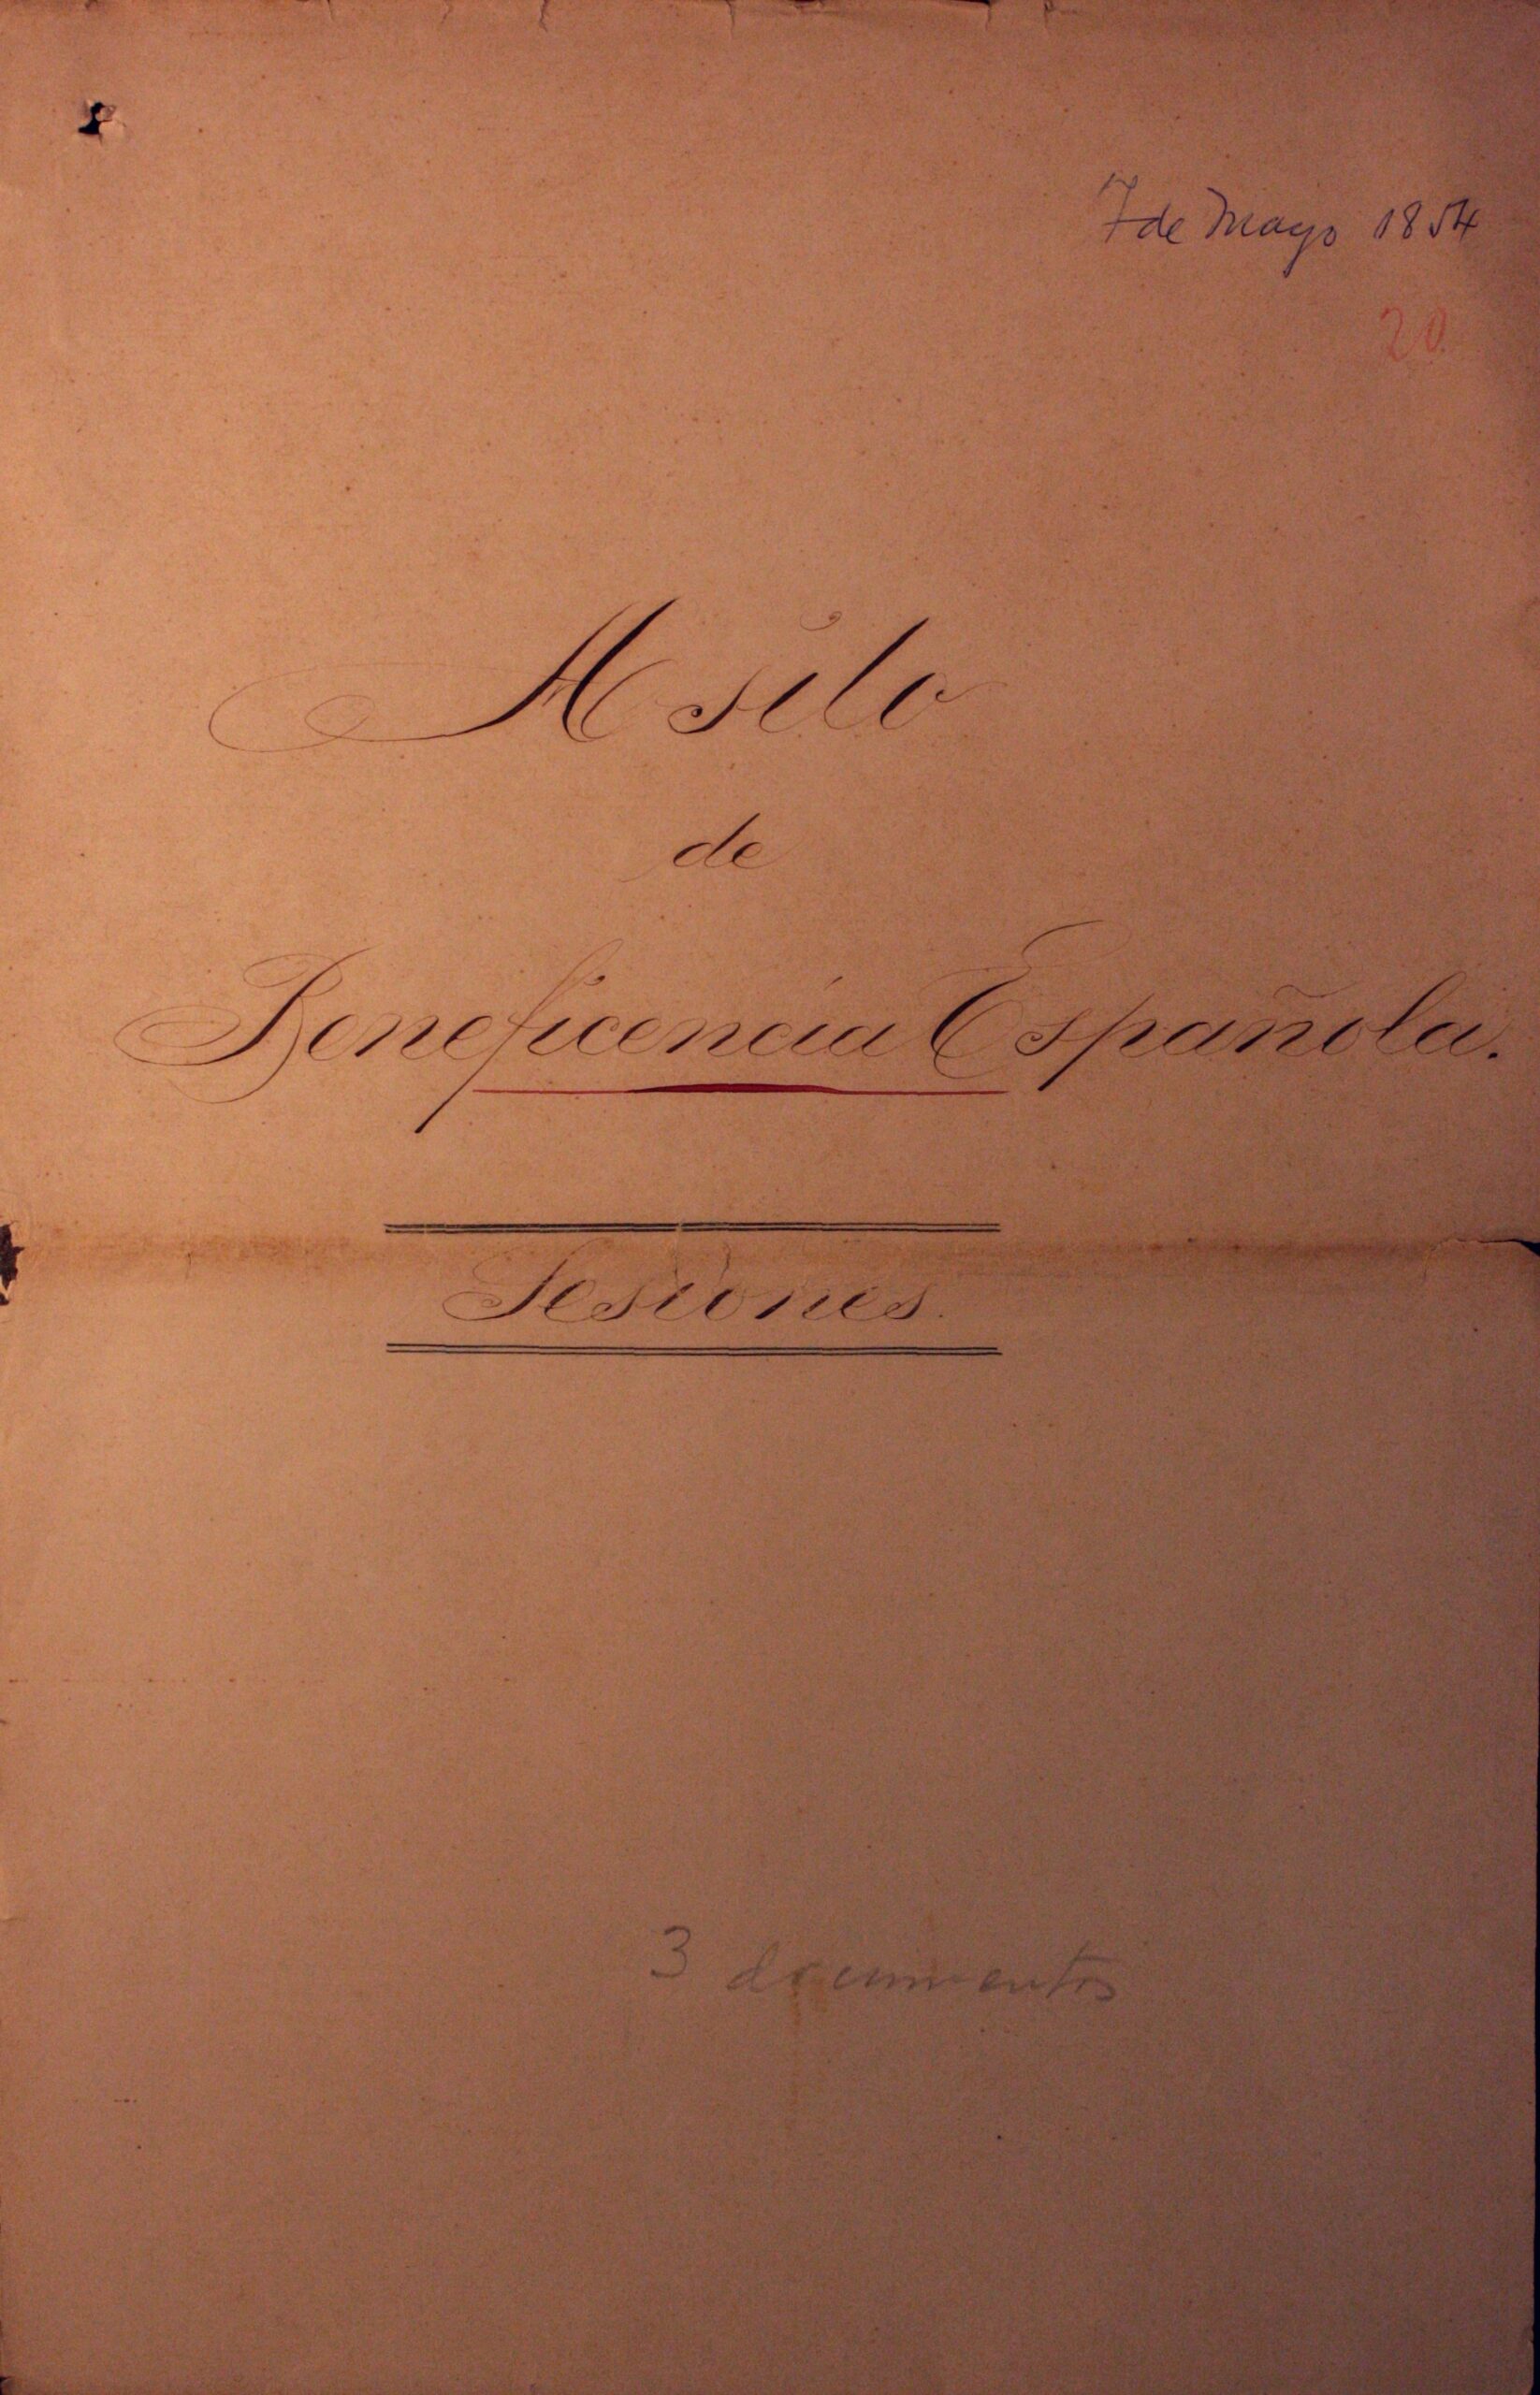 7 de Mayo 1854
20
Asilo
de
Beneficencia Española.
Sesiones.
3 documentos